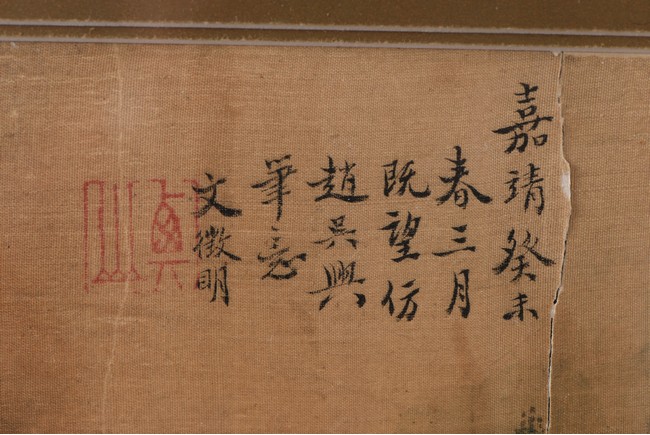 嘉靖癸未
春三月
既望仿
趙吳興
筆意
文徵明